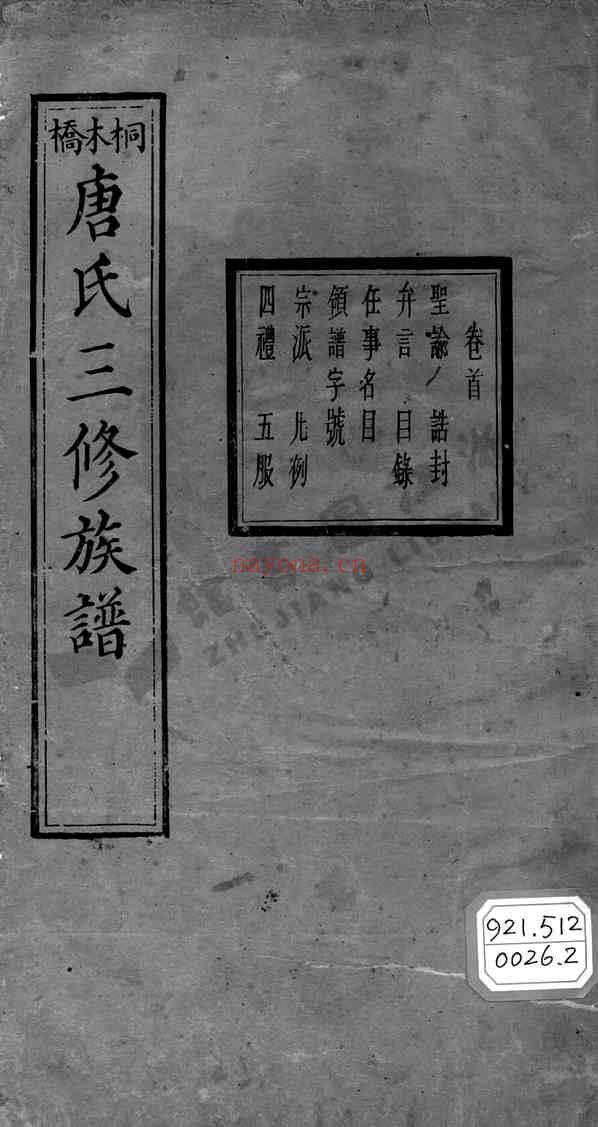 桐木橋
唐氏三修族譜
卷首
聖諭 誥封
弁言 目錄
任事名目
領譜字號
宗派 凡例
四禮 五服
nayona.cn
ZHEJIANG LIBRARY
921.512
0026.2